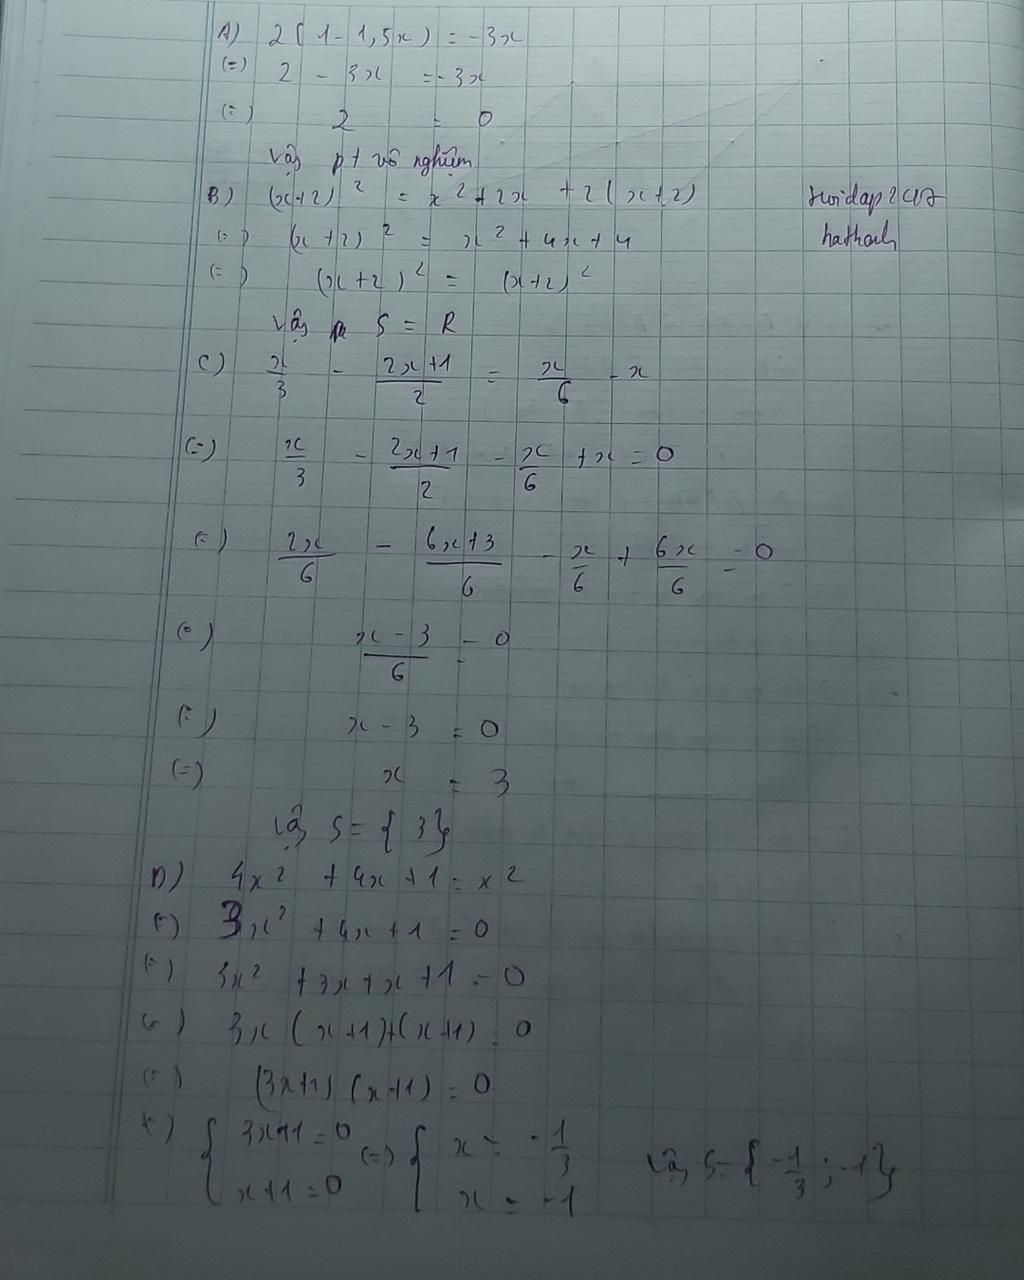 A) 2(1 - 1,5x) = -3x
(=) 2 - 3x = -3x
(=) 2 = 0
Vậy pt vô nghiệm
B) (x+2)² = x² + 2x + 2(x+2)
hoidap247
(=) (x+2)² = x² + 4x + 4
(=) (x+2)² = (x+2)²
Vậy S = R
C) x/3 - (2x+1)/2 = x/6 - x
(=) x/3 - (2x+1)/2 - x/6 + x = 0
(=) 2x/6 - (6x+3)/6 - x/6 + 6x/6 = 0
(=) (x-3)/6 = 0
(=) x - 3 = 0
(=) x = 3
Vậy S = {3}
D) 4x² + 4x + 1 = x²
(=) 3x² + 4x + 1 = 0
(=) 3x² + 3x + x + 1 = 0
(=) 3x(x+1)+(x+1) = 0
(=) (3x+1)(x+1) = 0
(=) { 3x+1=0 (=) { x = -1/3 Vậy S={-1/3; -1}
x+1=0 x = -1